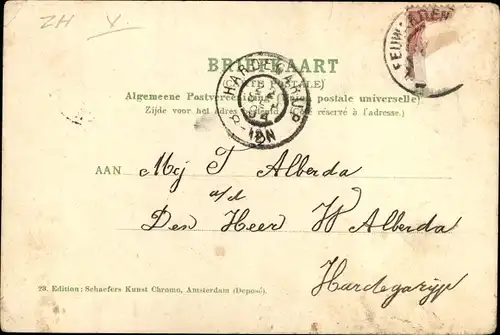 ZH V.
BRIEFKAART
(CARTE POSTALE)
Algemeene Postvereeniging (Union postale universelle)
Zijde voor het adres bestemd. (Côté réservé à l'adresse.)
HARDEGARIJP
8-12N
LEEUWARDEN
AAN Mej T Alberda
a/d
Den Heer W Alberda
Hardegarijp
23. Edition: Schaefers Kunst Chromo, Amsterdam (Deposé).